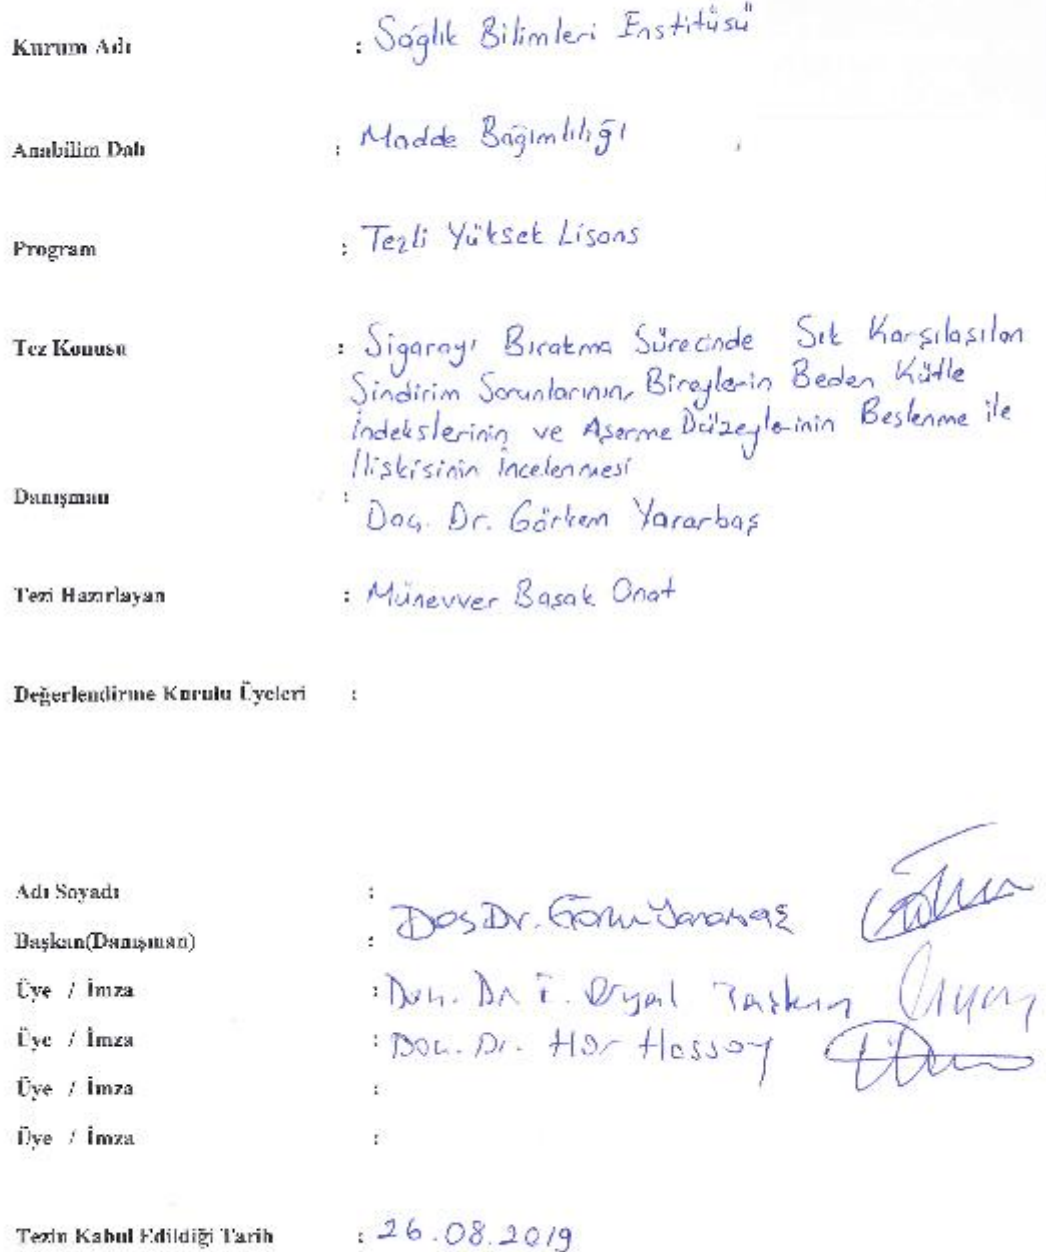 Kurum Adı : Sağlık Bilimleri Enstitüsü
Anabilim Dalı : Madde Bağımlılığı
Program : Tezli Yüksek Lisans
Tez Konusu : Sigarayı Bırakma Sürecinde Sık Karşılaşılan
Sindirim Sorunlarının, Bireylerin Beden Kütle
İndekslerinin ve Aşerme Düzeylerinin Beslenme ile
İlişkisinin İncelenmesi
Danışman : Doç. Dr. Görkem Yararbaş
Tezi Hazırlayan : Münevver Başak Onat
Değerlendirme Kurulu Üyeleri :
Adı Soyadı :
Başkan(Danışman) : Doç Dr. Görkem Yararbaş
Üye / İmza : Dr.
Üye / İmza : Doç. Dr. Hür Hassoy
Üye / İmza :
Üye / İmza :
Tezin Kabul Edildiği Tarih : 26.08.2019